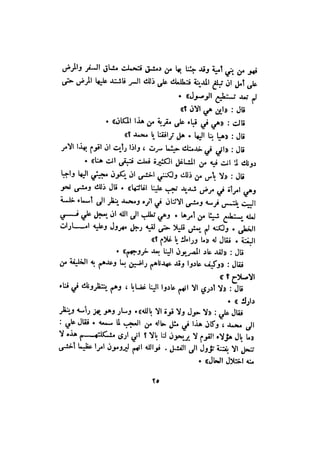 فهو من بني أمية وقد جئنا بها من دمشق فتحملت مشاق السفر والمرض
على أمل ان تبلغ المدينة فتطلعك على ذلك السر فاشتد عليها المرض حتى
لم تعد تستطيع الوصول» •
قال : «واين هي الآن ؟»
قالت : «هي في قباء على مقربة من هذا المكان» •
قال : «هيا بنا اليها • هل ترافقنا يا محمد ؟
قال : «اني في خدمتك حيثما سرت ، واذا رأيت ان اقوم بهذا الامر
دونك لما انت فيه من المشاغل الكثيرة فعلت فتبقى انت هنا» •
قال : «لا بأس من ذلك ولكنني اخشى ان يكون مجيئي اليها واجبا
وهي امرأة في مرض شديد تجب علينا اغاثتها» • قال ذلك ومشى نحو
البيت يلتمس فرسه ومشى الاثنان في اثره ومحمد ينظر الى أسماء خلسة
لعله يستطلع شيئا من أمرها • وهي تطلب الى الله ان يعجل علي فــــي
الخطى • ولكنه لم يمش قليلا حتى لقيه رجل مهرول وعليه امــــارات
البغتة • فقال له «ما وراءك يا غلام ؟»
قال : «لقد عاد المصريون الينا بعد خروجهم» •
فقال : «وكيف عادوا وقد عهدناهم راضين بما وعدهم به الخليفة من
الاصلاح ؟ »
قال : «لا أدري الا انهم عادوا الينا غضابا ، وهم ينتظرونك في فناء
دارك » •
فقال علي : «لا حول ولا قوة الا بالله» • وسار وهو يهز رأسه وينظر
الى محمد ، وكان هذا في مثل حاله من العجب لما سمعه • فقال علي :
«ما بال هؤلاء القوم لا يريحون لنا بالا ؟ اني ارى مشكلتهــــم هذه لا
تنحل الا بفتنة تؤول الى الفشل • فوالله انهم ليرومون امرا عظيما أخشى
منه اختلال الحال» •
٢٥